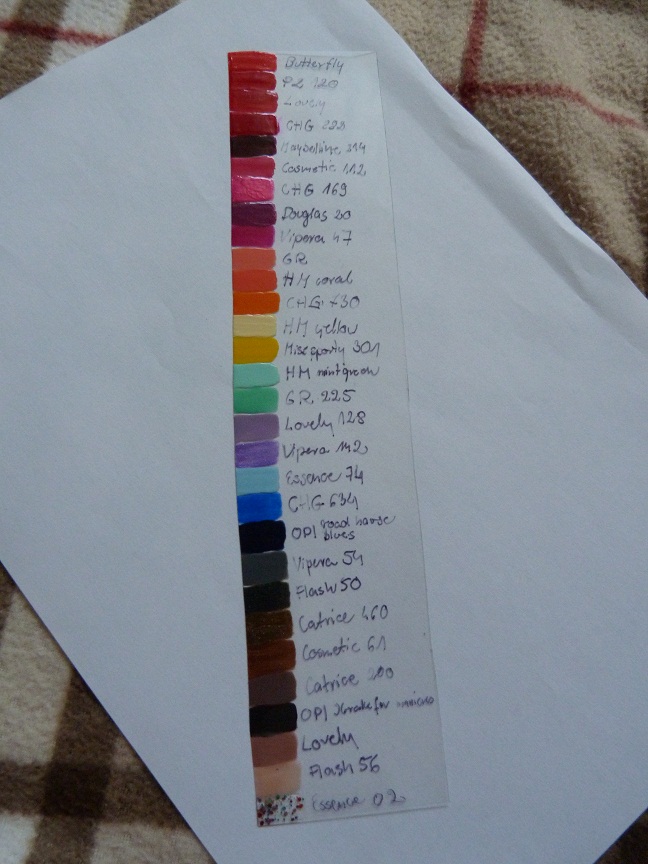 Butterfly
P2 120
Lovely
CHG 229
Maybelline 314
Cosmetic 112
CHG 169
Douglas 20
Vipera 47
GR
HM coral
CHG 730
HM yellow
Miss sporty 301
HM mint green
GR 225
Lovely 128
Vipera 142
Essence 74
CHG 634
OPI road house
blues
Vipera 54
Flash 50
Catrice 460
Cosmetic 61
Catrice 200
OPI for
Lovely
Flash 56
Essence 02